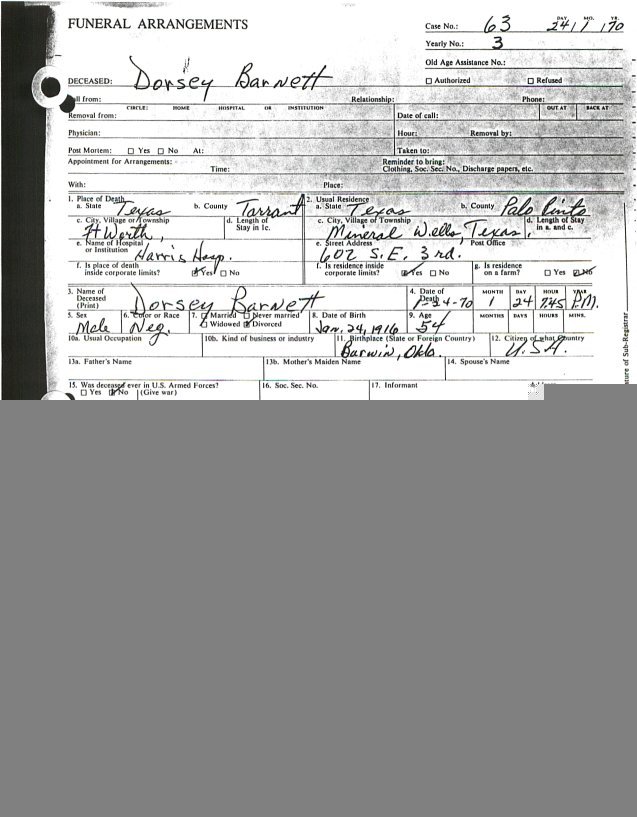 FUNERAL ARRANGEMENTS
Case No.: 63 DAY 24 MO. 1 YR. 70
Yearly No.: 3
Old Age Assistance No.:
DECEASED: Dorsey Barnett ☐ Authorized ☐ Refused
from: Relationship: Phone:
CIRCLE: HOME HOSPITAL OR INSTITUTION OUT AT BACK AT
Removal from: Date of call:
Physician: Hour: Removal by:
Post Mortem: ☐ Yes ☐ No At: Taken to:
Appointment for Arrangements: Reminder to bring:
Time: Clothing, Soc. Sec. No., Discharge papers, etc.
With: Place:
1. Place of Death 2. Usual Residence
a. State Texas b. County Tarrant a. State Texas b. County Palo Pinto
c. City, Village or Township d. Length of Stay in 1c. c. City, Village of Township d. Length of Stay in a. and c.
Ft Worth, Mineral Wells, Texas,
e. Name of Hospital or Institution Harris Hosp. e. Street Address 602 S.E. 3rd. Post Office
f. Is place of death inside corporate limits? ☑ Yes ☐ No f. Is residence inside corporate limits? ☑ Yes ☐ No g. Is residence on a farm? ☐ Yes ☑ No
3. Name of Deceased (Print) Dorsey Barnett 4. Date of Death 1-24-70 MONTH 1 DAY 24 HOUR 7:45 YEAR P.M.
5. Sex 6. Color or Race 7. ☐ Married ☐ Never married 8. Date of Birth 9. Age MONTHS DAYS HOURS MINS.
Male Neg. ☐ Widowed ☑ Divorced Jan. 24, 1916 54
10a. Usual Occupation 10b. Kind of business or industry 11. Birthplace (State or Foreign Country) 12. Citizen of what Country
Barwin, Okla. U.S.A.
13a. Father's Name 13b. Mother's Maiden Name 14. Spouse's Name
15. Was deceased ever in U.S. Armed Forces? 16. Soc. Sec. No. 17. Informant
☐ Yes ☑ No (Give war)
ture of Sub-Registrar